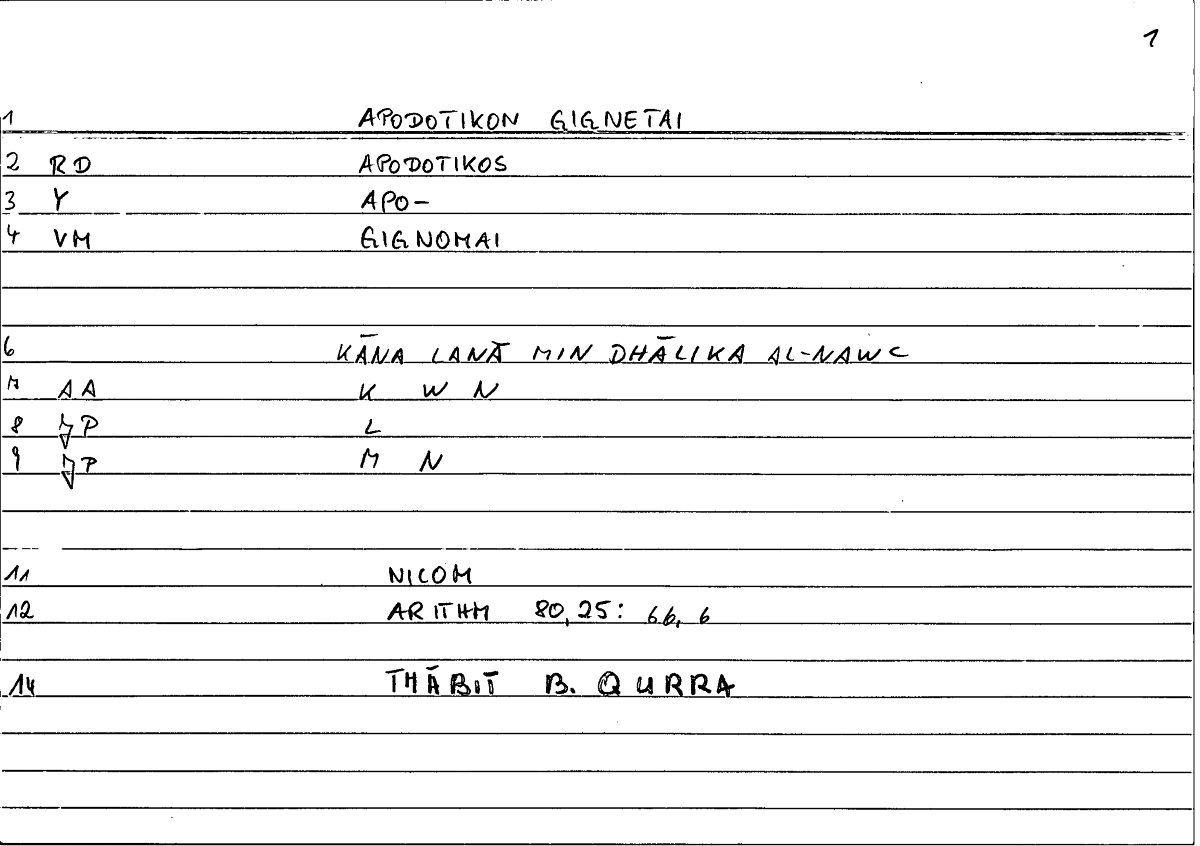 1
1 APODOTIKON GIGNETAI
2 RD APODOTIKOS
3 Y APO-
4 VM GIGNOMAI
6 KĀNA LANĀ MIN DHĀLIKA AL-NAWC
7 AA K W N
8 P L
9 P M N
11 NICOM
12 ARITHM 80,25: 66,6
14 THĀBIT B. QURRA